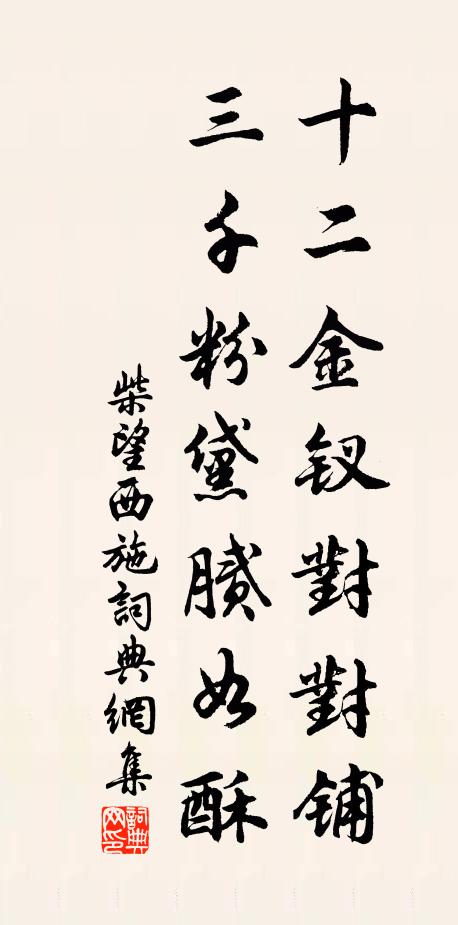 十二金釵對對鋪
三千粉黛膩如酥
柴望西施詞典網集
詞典網印